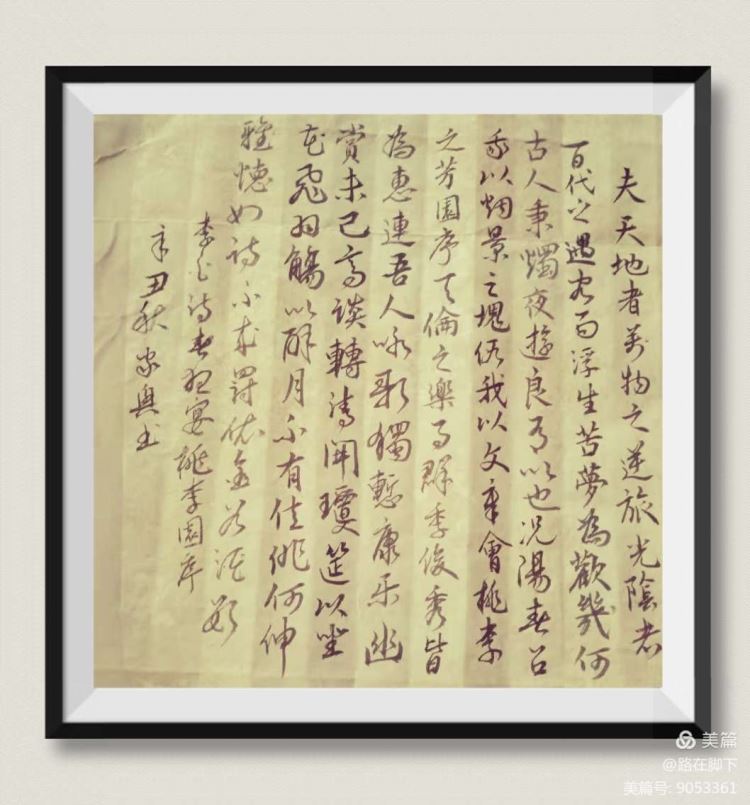 夫天地者萬物之逆旅光陰者
百代之過客而浮生若夢為歡幾何
古人秉燭夜遊良有以也況陽春召
我以烟景大塊假我以文章會桃李
之芳園序天倫之樂事群季俊秀皆
為惠連吾人咏歌獨慙康乐幽
賞未已高談轉清開瓊筵以坐
花飛羽觴以醉月不有佳作何伸
雅懷如詩不成罰依金谷酒数
李白詩春夜宴桃李園序
辛丑秋 興书
美篇
@路在脚下
美篇号: 9053361